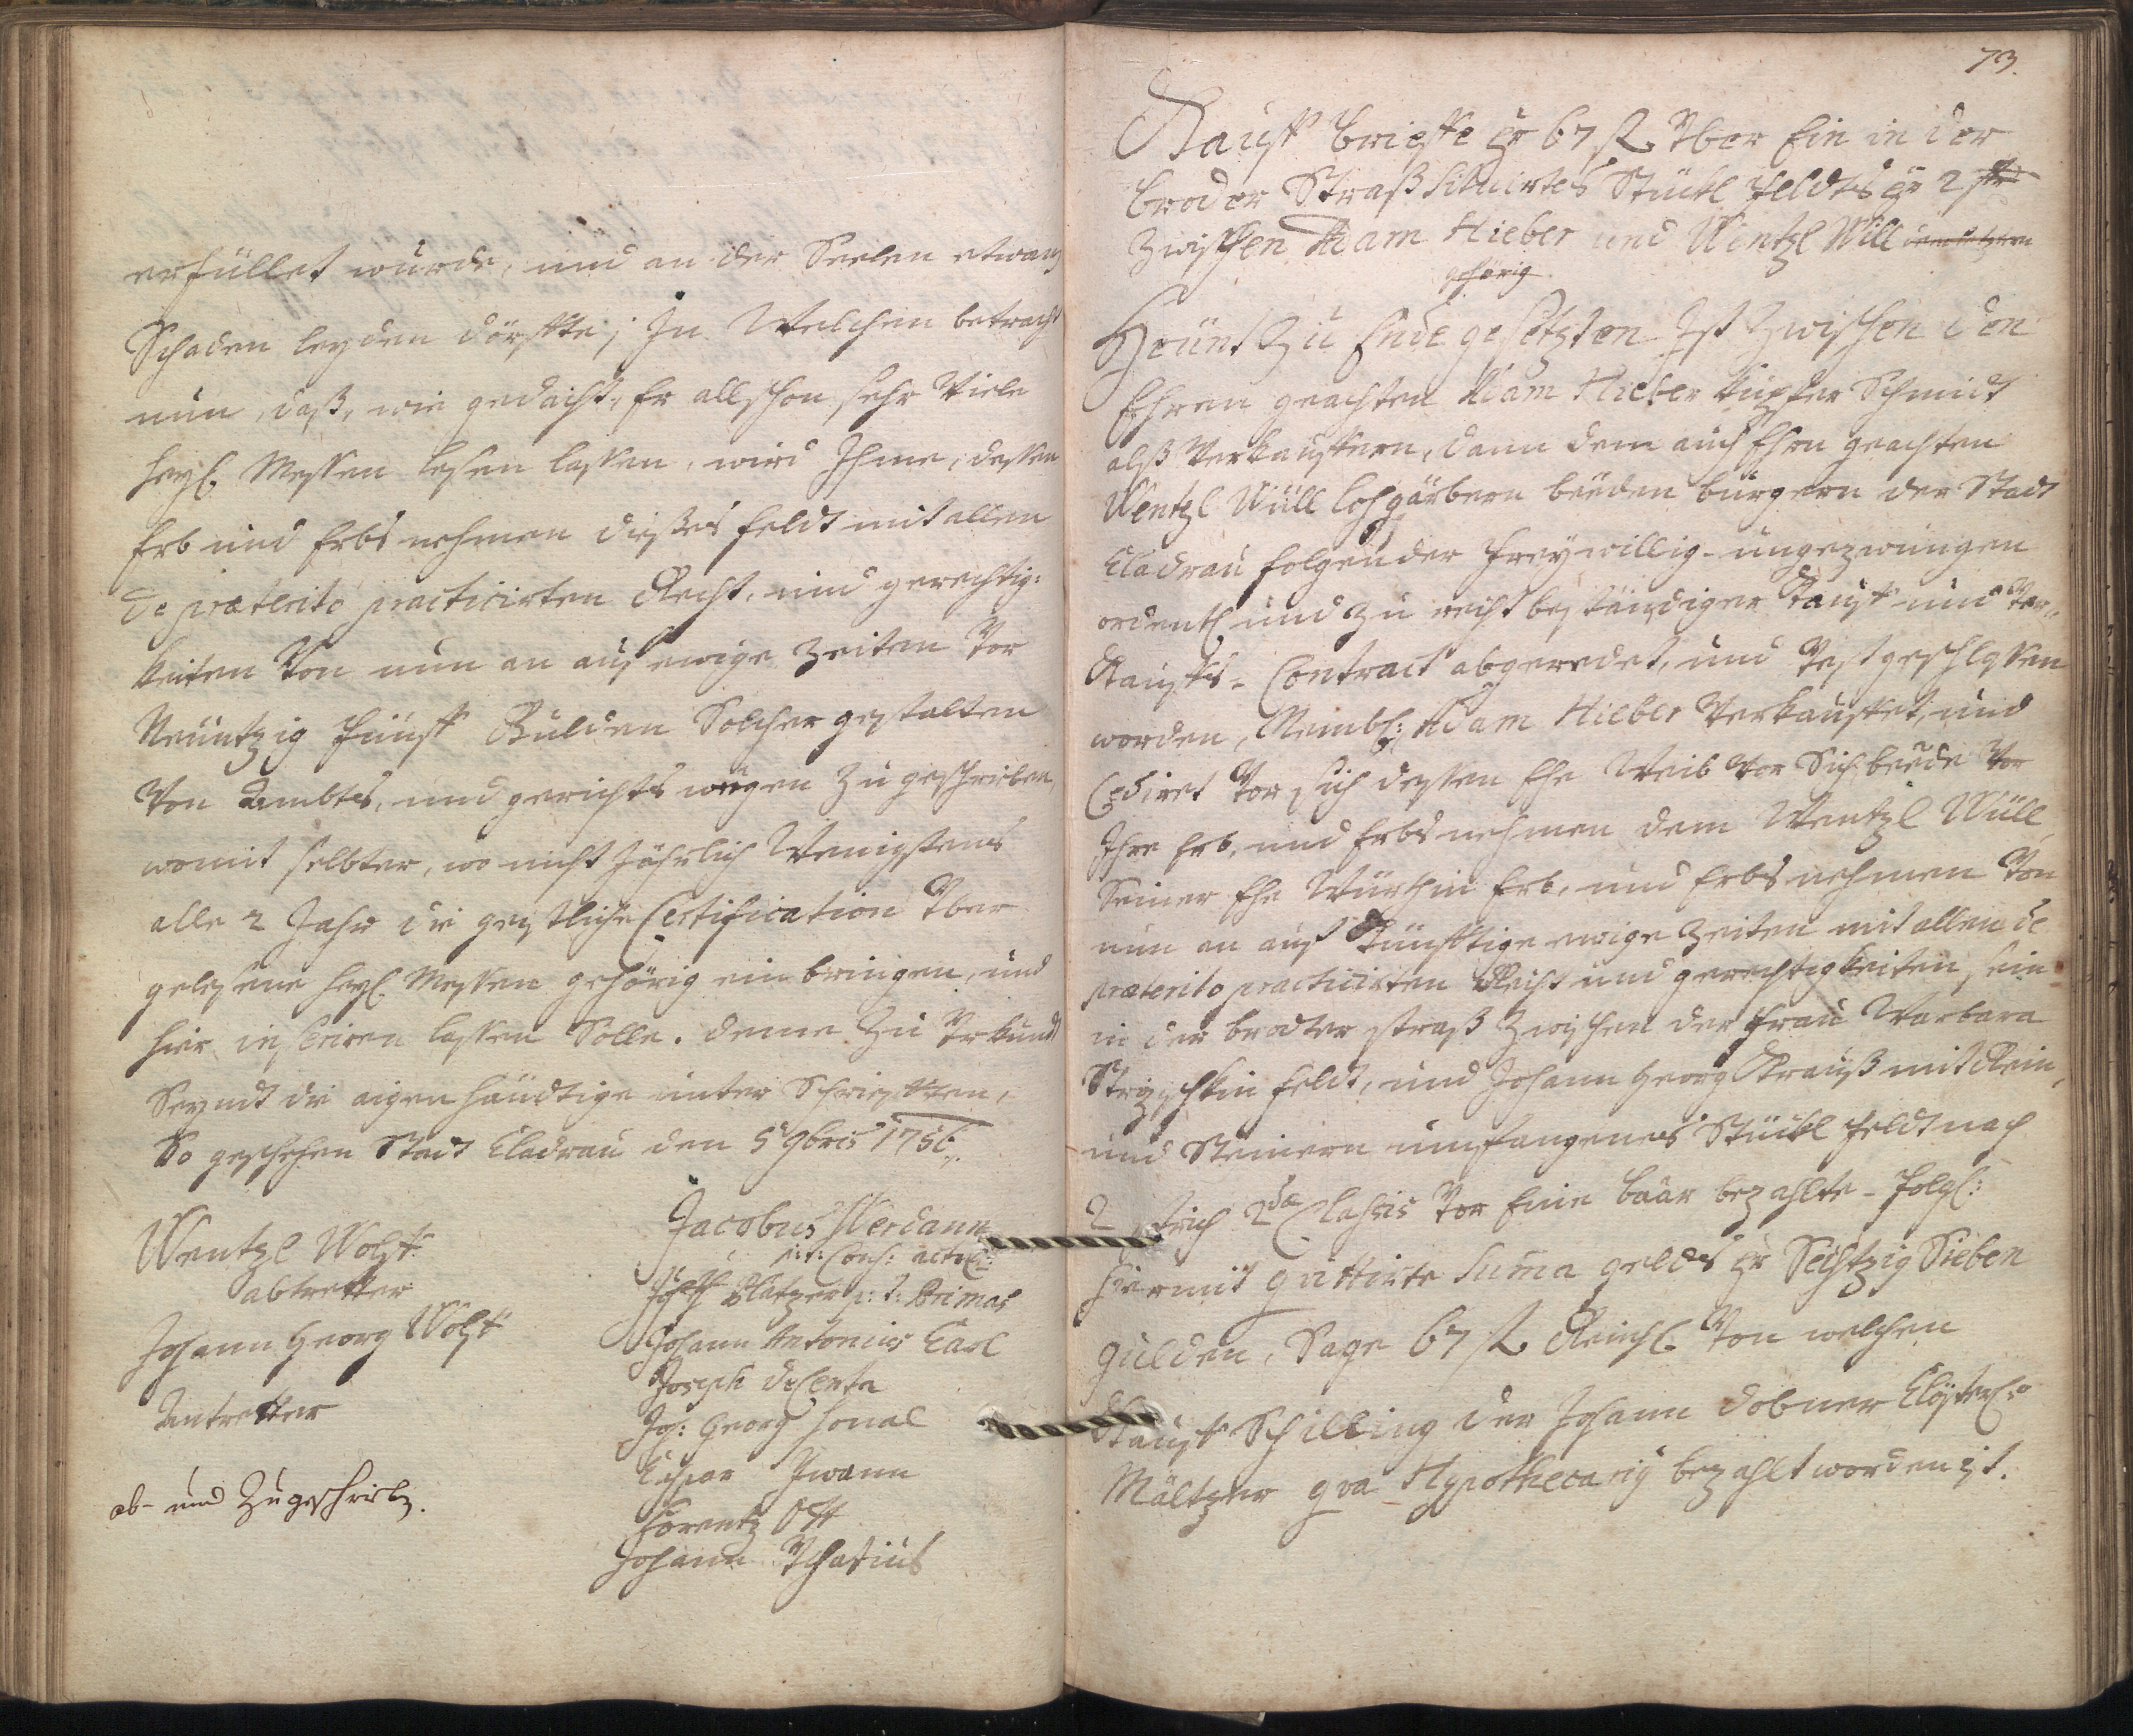 erfüllet wurde, und an der Seelen etwan
Schaden leyden dörffte; In Welchen betracht
nun, daß, wie gedacht, Er allschon sehr Viele
heyl. Messen lesen lassen, wird Ihme, dessen
Erb und Erbs nehmen dießes feldt mit allen
de præterito practicirten Recht, und gerechtig:
keiten Von nun an auf ewige Zeiten Vor
Neuntzig fünff Gulden Solcher gestalten
Von Ambts, und gerichts wegen Zu geschrieben,
womit selbter, wo nicht Jährlich Wenigstens
alle 2 Jahr die geistliche Certification Über
gelesene heyl. Messen gehörig ein bringen, und
hier inseriren lassen Solle. deme Zu Urkund
Seyndt die aigen händtige unter Schriefften,
So geschehen Stadt Cladrau den 5 9bris 1756.
Wentzl Wolf
abtretter
Johann Georg Wolf
Antretter
ab- und Zugeschrieb.
Jacobus
p: t: Primas
Johann Antonius Carl
Joseph
Joh: Georg
Caspar
Lorentz Ott
Johann
73.
Kauff brieffe pr 67 f Über Ein in der
broder Straß situirtes Stückl feldts pr 2 str
Zwischen Adam Hieber und Wentzl Wüll
gehörig
Heünt Zu Ende gesetzten Ist Zwischen den
Ehren geachten Adam Hieber Kupfer Schmidt
alß Verkauffern, dann dem auch Ehrn geachten
Wentzl Wüll lohgärbern beeden bürgern der Stadt
Cladrau folgender freywillig-ungezwungen
ordentl und zu recht beständiger Kauff und Ver„
Kauffs-Contract abgeredet, und Vestgeschlossen
worden, Nembl: Adam Hieber Verkauffet, und
Cediret Vor sich dessen Ehe Weib Vor Sich beede Vor
Ihre Erb, und Erbs nehmen dem Wentzl Wüll,
Seiner Ehe Würthin Erb, und Erbs nehmen Von
nun an auf Künfftige ewige Zeiten mit allen de
præterito practicirten Recht und gerechtigkeiten sein
in der broder straß Zwischen der Frau Barbara
feldt, und Johann Georg Krauß mit Rein,
und Steinern umfangenes Stückl feldt nach
2 strich 2dæ Classis Vor Eine baar bezahlte- folgl:
hiermit quittirte Suma gelds pr Sechtzig Sieben
gulden, Sage 67 f Reinl. Von welchen
Kauff Schilling der Johann Dobner Clösterl:r
Mältzer qva Hypothecariy bezahlt worden ist.